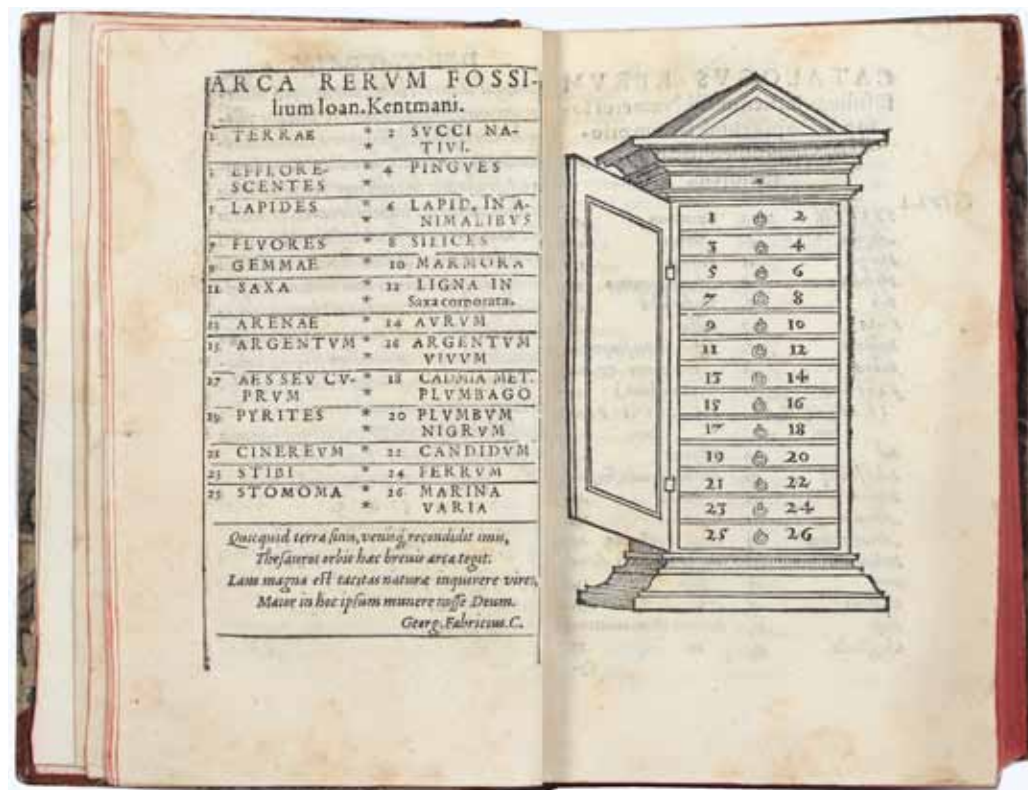 ARCA RERVM FOSSI-
lium Ioan. Kentmani.
1 TERRAE * 2 SVCCI NA-
* TIVI.
3 EFFLORE- * 4 PINGVES
SCENTES *
5 LAPIDES * 6 LAPID. IN A-
* NIMALIBVS
7 FLVORES * 8 SILICES
9 GEMMAE * 10 MARMORA
11 SAXA * 12 LIGNA IN
* Saxa corporata.
13 ARENAE * 14 AVRVM
15 ARGENTVM * 16 ARGENTVM
* VIVVM
17 AES SEV CV- * 18 CADMIA MET.
PRVM * PLVMBAGO
19 PYRITES * 20 PLVMBVM
* NIGRVM
21 CINEREVM * 22 CANDIDVM
23 STIBI * 24 FERRVM
25 STOMOMA * 26 MARINA
* VARIA
Quicquid terra sinu, venisq́; recondidit imis,
Thesauros orbis hæc breuis arca tegit.
Laus magna est tacitas naturæ inquirere vires,
Maior in hoc ipsum munere nosse Deum.
Georg. Fabricius. C.
1 2
3 4
5 6
7 8
9 10
11 12
13 14
15 16
17 18
19 20
21 22
23 24
25 26